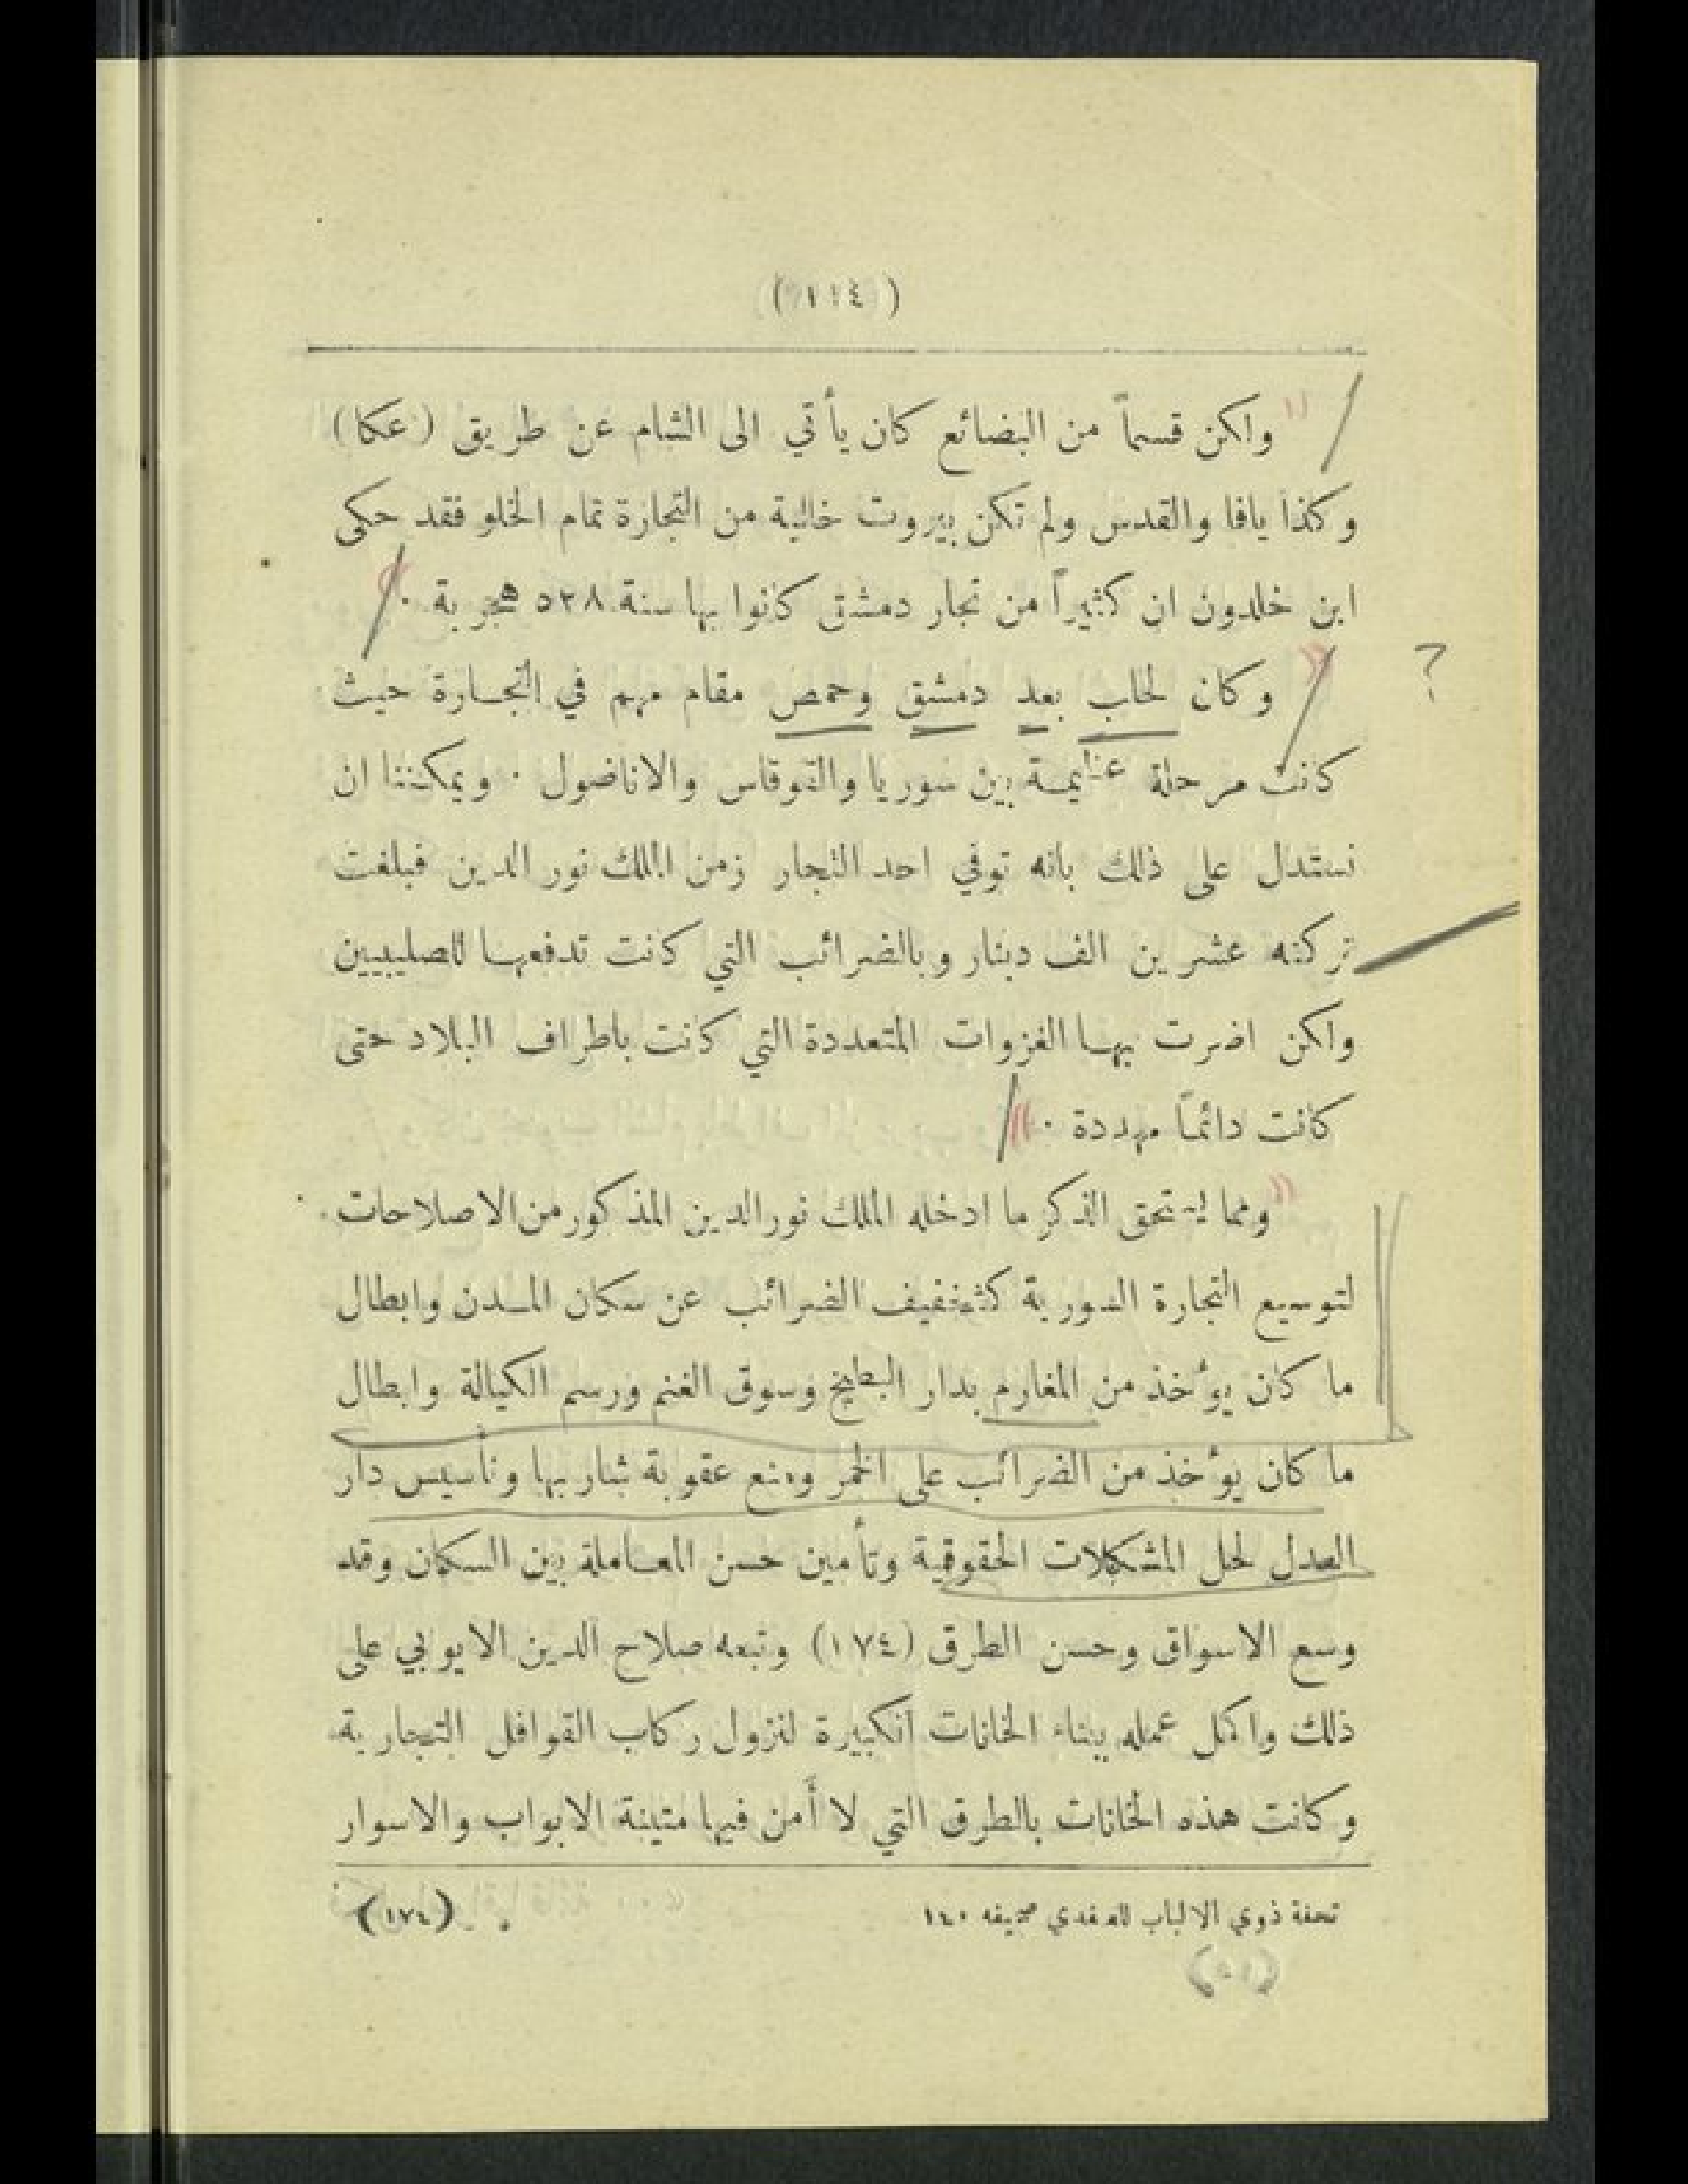 (١١٤)
ولكن قسماً من البضائع كان يأتي الى الشام عن طريق (عكا)
وكذا يافا والقدس ولم تكن بيروت خالية من التجارة تمام الخلو فقد حكى
ابن خلدون ان كثيراً من تجار دمشق كانوا بها سنة ٥٣٨ هجرية .
وكان لحلب بعد دمشق وحمص مقام مهم في التجارة حيث
كانت مرحلة عظيمة بين سوريا والقوقاس والاناضول . ويمكننا ان
نستدل على ذلك بانه توفي احد التجار زمن الملك نور الدين فبلغت
تركته عشرين الف دينار وبالضرائب التي كانت تدفعها للصليبيين
ولكن اضرت بها الغزوات المتعددة التي كانت باطراف البلاد حتى
كانت دائماً مهددة .
ومما يستحق الذكر ما ادخله الملك نور الدين المذكور من الاصلاحات
لتوسيع التجارة السورية كتخفيف الضرائب عن سكان المدن وابطال
ما كان يؤخذ من المغارم بدار البطيخ وسوق الغنم ورسم الكيالة وابطال
ما كان يؤخذ من الضرائب على الخمر ومنع عقوبة شاربها وتأسيس دار
العدل لحل المشكلات الحقوقية وتأمين حسن المعاملة بين السكان وقد
وسع الاسواق وحسن الطرق (١٧٤) وتبعه صلاح الدين الايوبي على
ذلك واكمل عمله ببناء الخانات الكبيرة لنزول ركاب القوافل التجارية
وكانت هذه الخانات بالطرق التي لا أمن فيها متينة الابواب والاسوار
تحفة ذوي الالباب للصفدي صحيفه ١٤٠ (١٧٤)